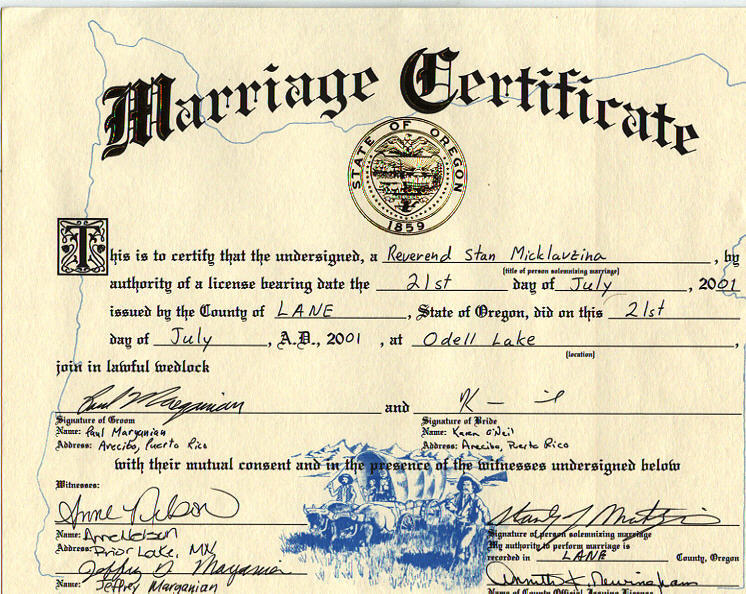 Marriage Certificate
STATE OF OREGON
1859
This is to certify that the undersigned, a Reverend Stan Micklavzina, by
(title of person solemnizing marriage)
authority of a license bearing date the 21st day of July, 2001
issued by the County of LANE, State of Oregon, did on this 21st
day of July A.D., 2001, at Odell Lake,
(location)
join in lawful wedlock
Paul Marganian and K
Signature of Groom Signature of Bride
Name: Paul Marganian Name: Karen O'Neil
Address: Arecibo, Puerto Rico Address: Arecibo, Puerto Rico
with their mutual consent and in the presence of the witnesses undersigned below
Witnesses:
Anne Nelson
Name: Anne Nelson
Signature of person solemnizing marriage
Address: Prior Lake, MN
My authority to perform marriage is
recorded in LANE County, Oregon
Jeffrey D Marganian
Name: Jeffrey Marganian
Name of County Official Issuing License